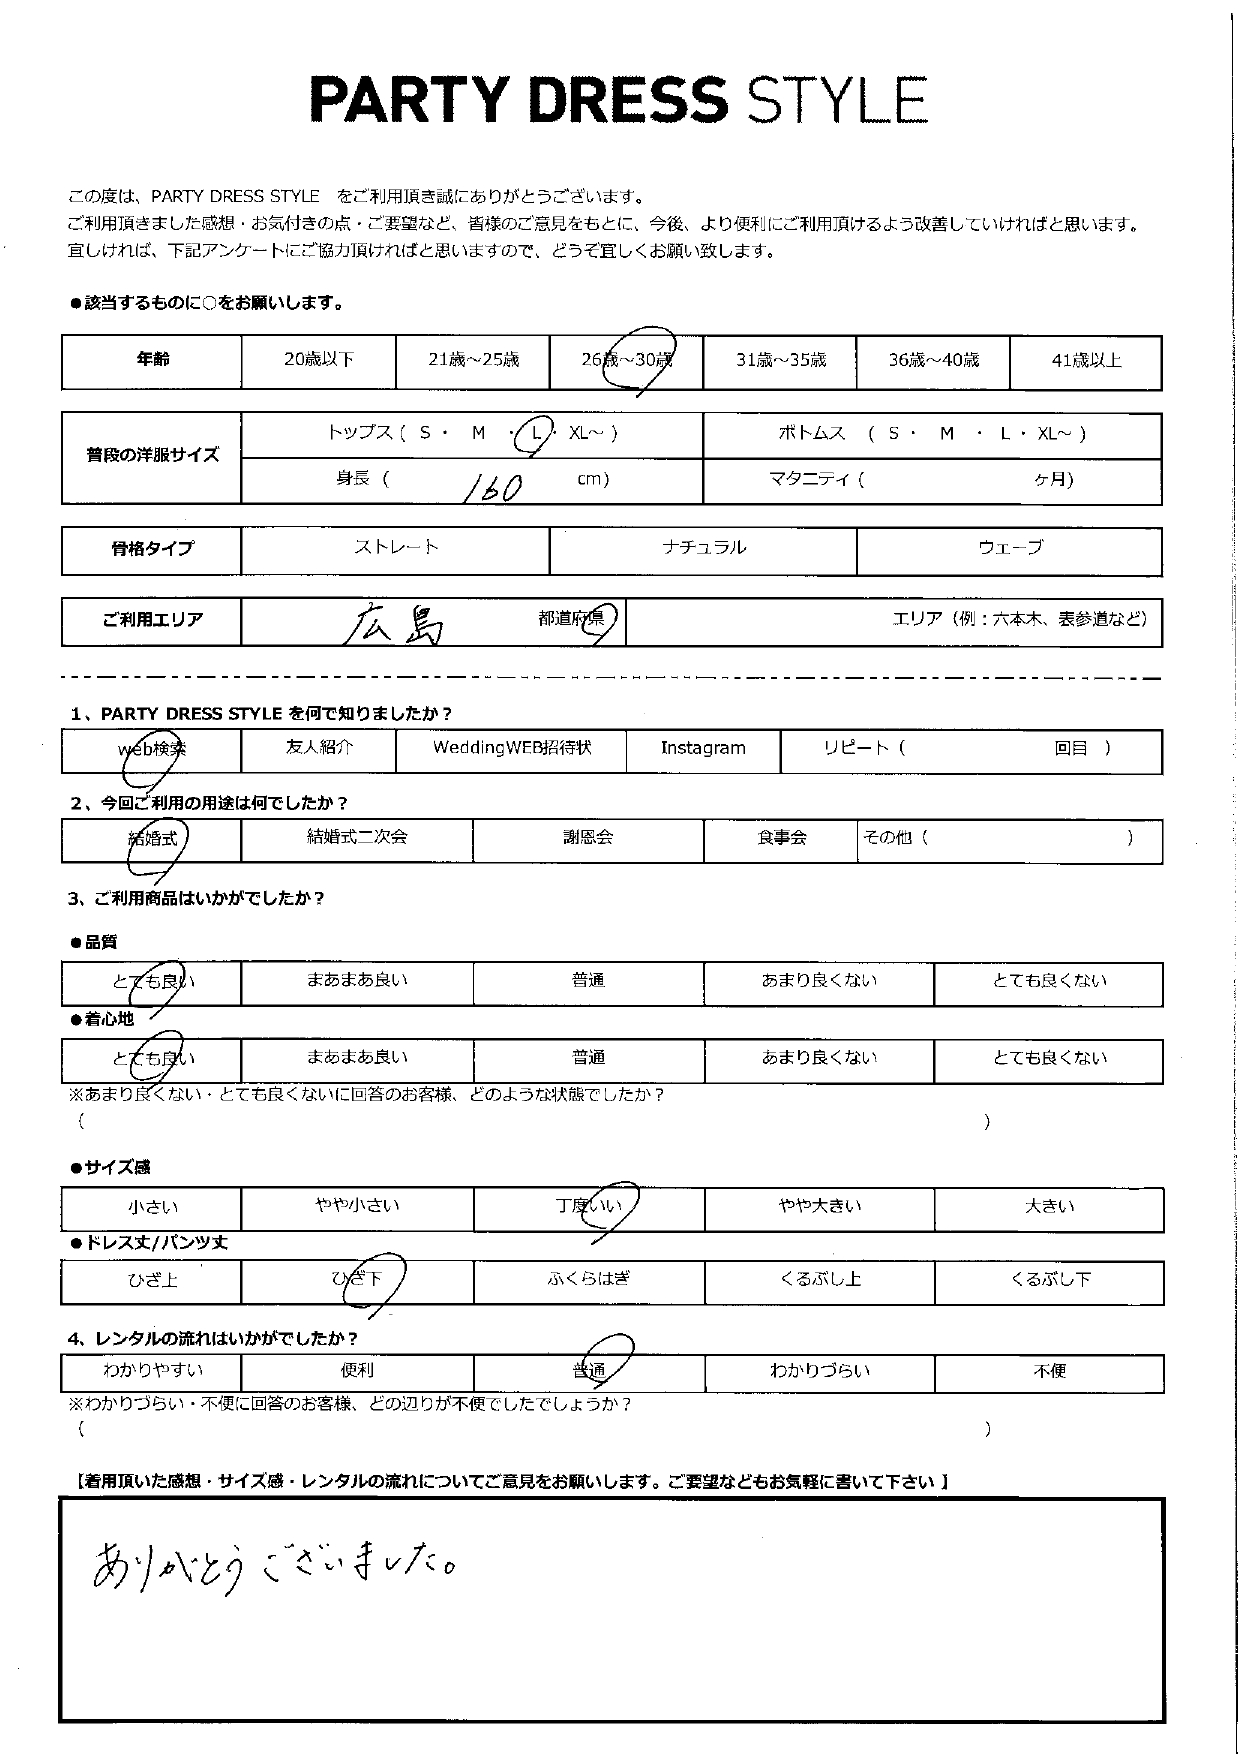 PARTY DRESS STYLE
この度は、PARTY DRESS STYLE をご利用頂き誠にありがとうございます。
ご利用頂きました感想・お気付きの点・ご要望など、皆様のご意見をもとに、今後、より便利にご利用頂けるよう改善していければと思います。
宜しければ、下記アンケートにご協力頂ければと思いますので、どうぞ宜しくお願い致します。
●該当するものに○をお願いします。
年齢 20歳以下 21歳～25歳 26歳～30歳 31歳～35歳 36歳～40歳 41歳以上
普段の洋服サイズ トップス ( S ・ M ・ L ・ XL～ ) ボトムス ( S ・ M ・ L ・ XL～ )
身長 ( 160 cm) マタニティ ( ヶ月)
骨格タイプ ストレート ナチュラル ウェーブ
ご利用エリア 広島 都道府県 エリア（例：六本木、表参道など）
1、PARTY DRESS STYLE を何で知りましたか？
web検索 友人紹介 WeddingWEB招待状 Instagram リピート ( 回目 )
2、今回ご利用の用途は何でしたか？
結婚式 結婚式二次会 謝恩会 食事会 その他 ( )
3、ご利用商品はいかがでしたか？
●品質
とても良い まあまあ良い 普通 あまり良くない とても良くない
●着心地
とても良い まあまあ良い 普通 あまり良くない とても良くない
※あまり良くない・とても良くないに回答のお客様、どのような状態でしたか？
( )
●サイズ感
小さい やや小さい 丁度いい やや大きい 大きい
●ドレス丈/パンツ丈
ひざ上 ひざ下 ふくらはぎ くるぶし上 くるぶし下
4、レンタルの流れはいかがでしたか？
わかりやすい 便利 普通 わかりづらい 不便
※わかりづらい・不便に回答のお客様、どの辺りが不便でしたでしょうか？
( )
【着用頂いた感想・サイズ感・レンタルの流れについてご意見をお願いします。ご要望などもお気軽に書いて下さい 】
ありがとうございました。